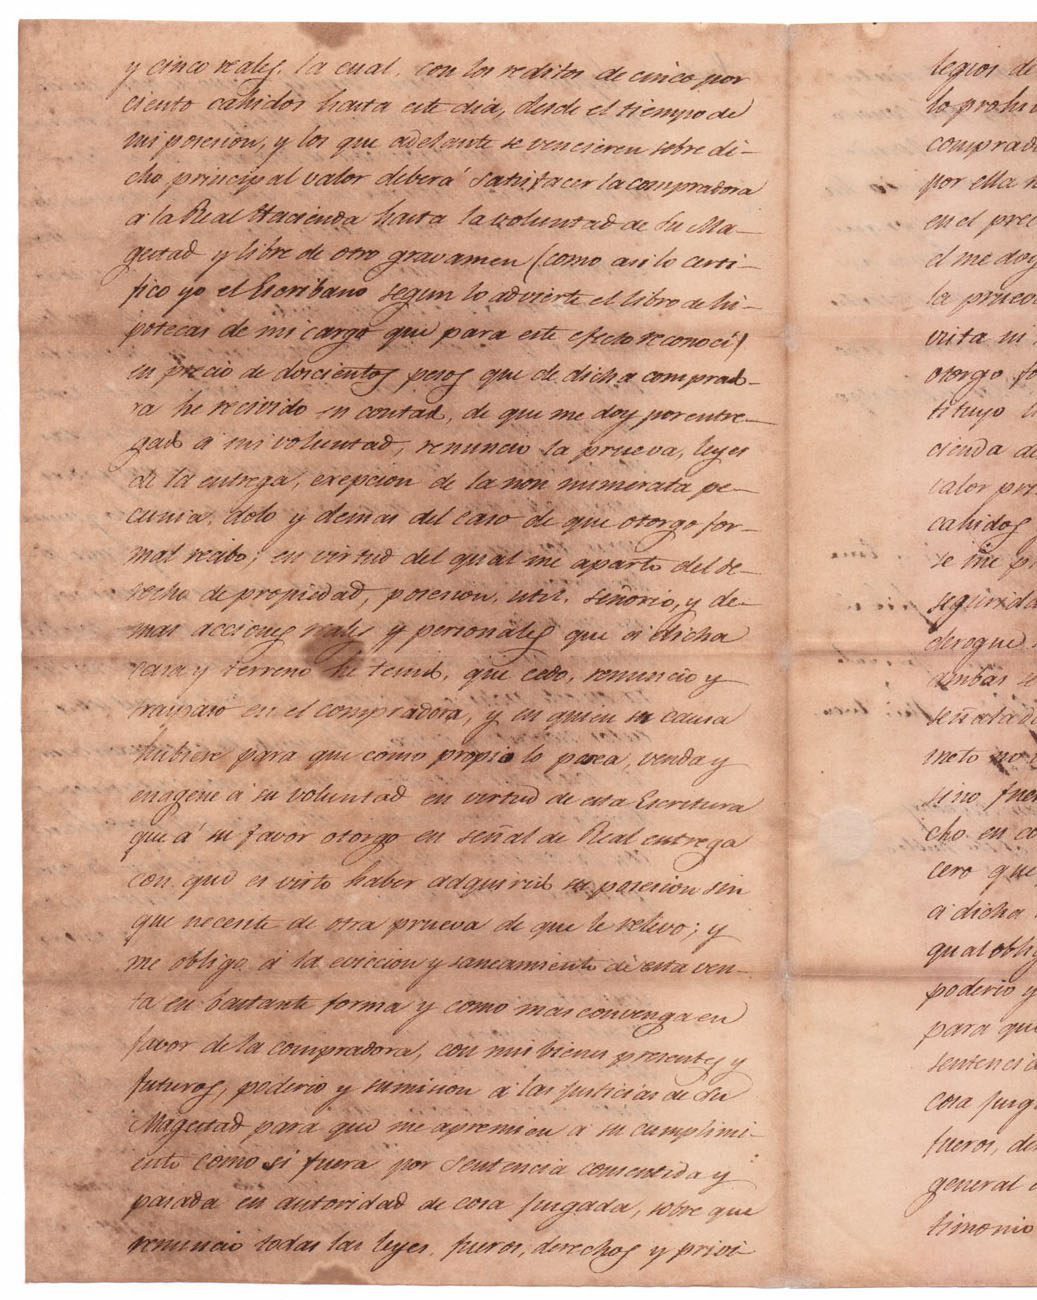 y cinco reales. la cual, con los reditos de cinco por
ciento cahidos hasta este dia, desde el tiempo de
mi posesion, y los que adelante se vencieren sobre di-
cho principal valor deberá satisfacer la compradora
a la Real Hacienda hasta la voluntad de Su Ma-
gestad y libre de otro gravamen (como asi lo certi-
fico yo el Escribano segun lo advierte el libro de hi-
potecas de mi cargo que para este efecto reconocí)
en precio de doscientos pesos que de dicha comprad-
ra he recivido en contad, de que me doy por entre-
gad á mi voluntad, renuncio la prueva, leyes
de la entrega, exepcion de la non numerata pe-
cunia, dolo y demas del caso de que otorgo for-
mal recibo; en virtud del qual me aparto del de-
recho de propiedad, posesion, util, señorio, y de-
mas acciones reales y personales que á dicha
casa y terreno he tenid, que cedo, renuncio y
traspaso en el compradora, y en quien su causa
hubiere para que como propio lo posea, venda y
enagene á su voluntad en virtud de esta Escritura
que á su favor otorgo en señal de Real entrega
con que es visto haber adquirid su posesion sin
que necesite de otra prueva de que le relievo; y
me obligo á la eviccion y saneamiento de esta ven-
ta en bastante forma y como mas convenga en
favor de la compradora, con mis bienes presentes y
futuros, poderio y sumision á las Justicias de Su
Magestad para que me apremien á su cumplimi-
ento como si fuera por sentencia consentida y
pasada en autoridad de cosa jusgada, sobre que
renuncio todas las leyes, fueros, derechos y privi-
legios de
lo prohi
comprad
por ella
en el prec
el me doy
la prueva
vista ni
otorgo fo
tituyo
cienda de
valor pri
cahidos
se me p
segurida
derogue
ambas se
señalad
meto no
sino fue
cho en co
cero que
á dicha
qual oblig
poderio y
para que
sentencia
cosa jusg
fueros, de
general
timonio